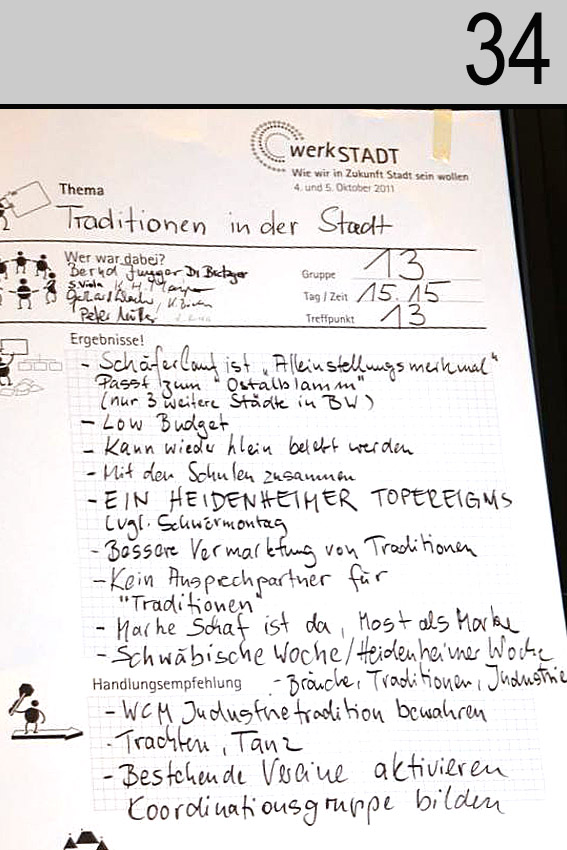 34
werkSTADT
Wie wir in Zukunft Stadt sein wollen
4. und 5. Oktober 2011
Thema
Traditionen in der Stadt
Wer war dabei?
Bernd
Peter
Gruppe 13
Tag / Zeit 15.15
Treffpunkt 13
Ergebnisse!
- Schäferlauf ist „Alleinstellungsmerkmal“
Passt zum "Ostalblamm"
(nur 3 weitere Städte in BW)
- Low Budget
- Kann wieder klein belebt werden
- Mit den Schulen zusammen
- EIN HEIDENHEIMER TOPEREIGNIS
(vgl. Schwörmontag
- Bessere Vermarktung von Traditionen
- Kein Ansprechpartner für
"Traditionen"
- Marke Schaf ist da, Most als Marke
- Schwäbische Woche/Heidenheimer Woche
- Bräuche, Traditionen, Industrie
Handlungsempfehlung
- WCM Industrietradition bewahren
- Trachten, Tanz
- Bestehende Vereine aktivieren
Koordinationsgruppe bilden